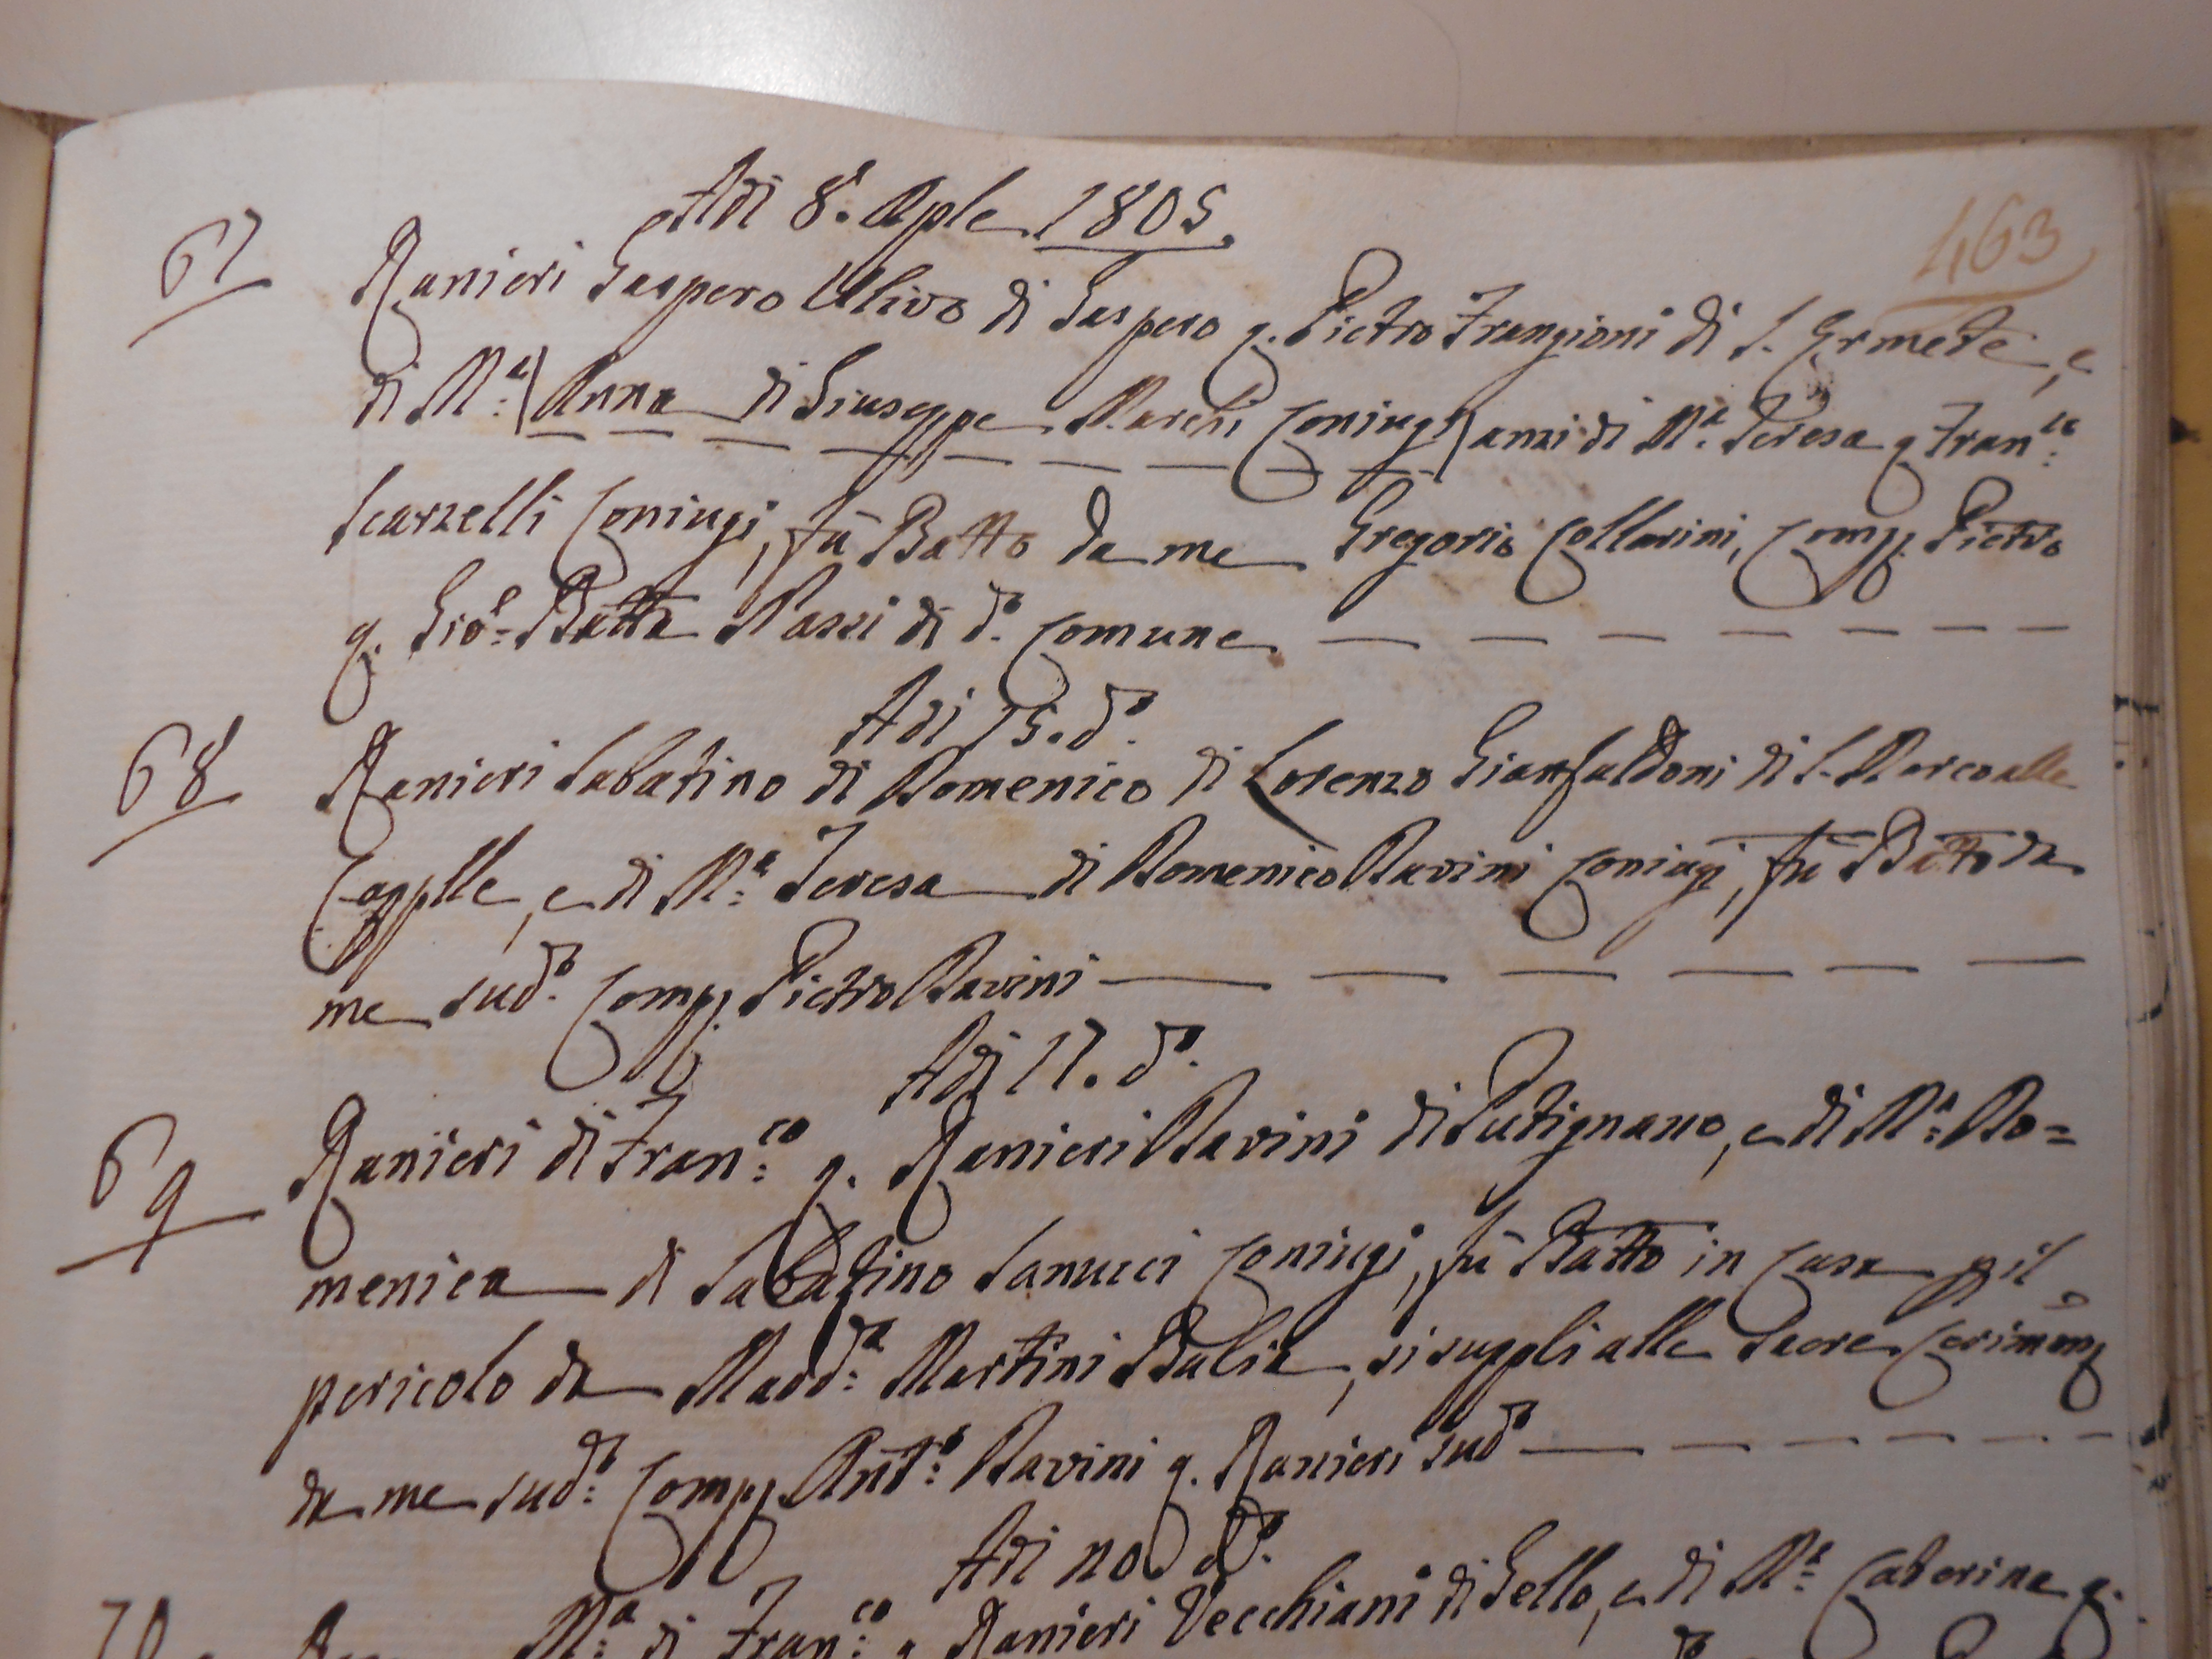 463
Adi 8. Aple 1805.
67 Ranieri Gaspero Ulivo di Gaspero q. Pietro Frangioni di S. Ermete, e
di M:a (Anna di Giuseppe Marchi Coniugi) anzi di M.a Teresa q Fran:co
Scarzelli Coniugi, fù Batto da me Gregorio Collavini, Comp. Pietro
q. Gio: Batta Passi di d.o Comune
Adi 15. d.o
68 Ranieri Sabatino di Domenico di Lorenzo Gianfaldoni di S. Marco alle
Capplle, e di M:a Teresa di Domenico Davini Coniugi, fù Batto da
me sud.o Comp. Pietro Davini
Adi 17. d.o
69 Ranieri di Fran:co q. Ranieri Davini di Putignano, e di M:a Do=
menica di Sabatino Sanucci Coniugi, fù Batto in Casa p il
pericolo da Madd:a Martini Balia, si supplì alle Sacre Cerimon
da me sud:o Comp. Ant:o Davini q. Ranieri sud.o
Adi 20 d.o
70 M:a di Fran:co q Ranieri Vecchiani di Gello, e di M:a Caterina q.